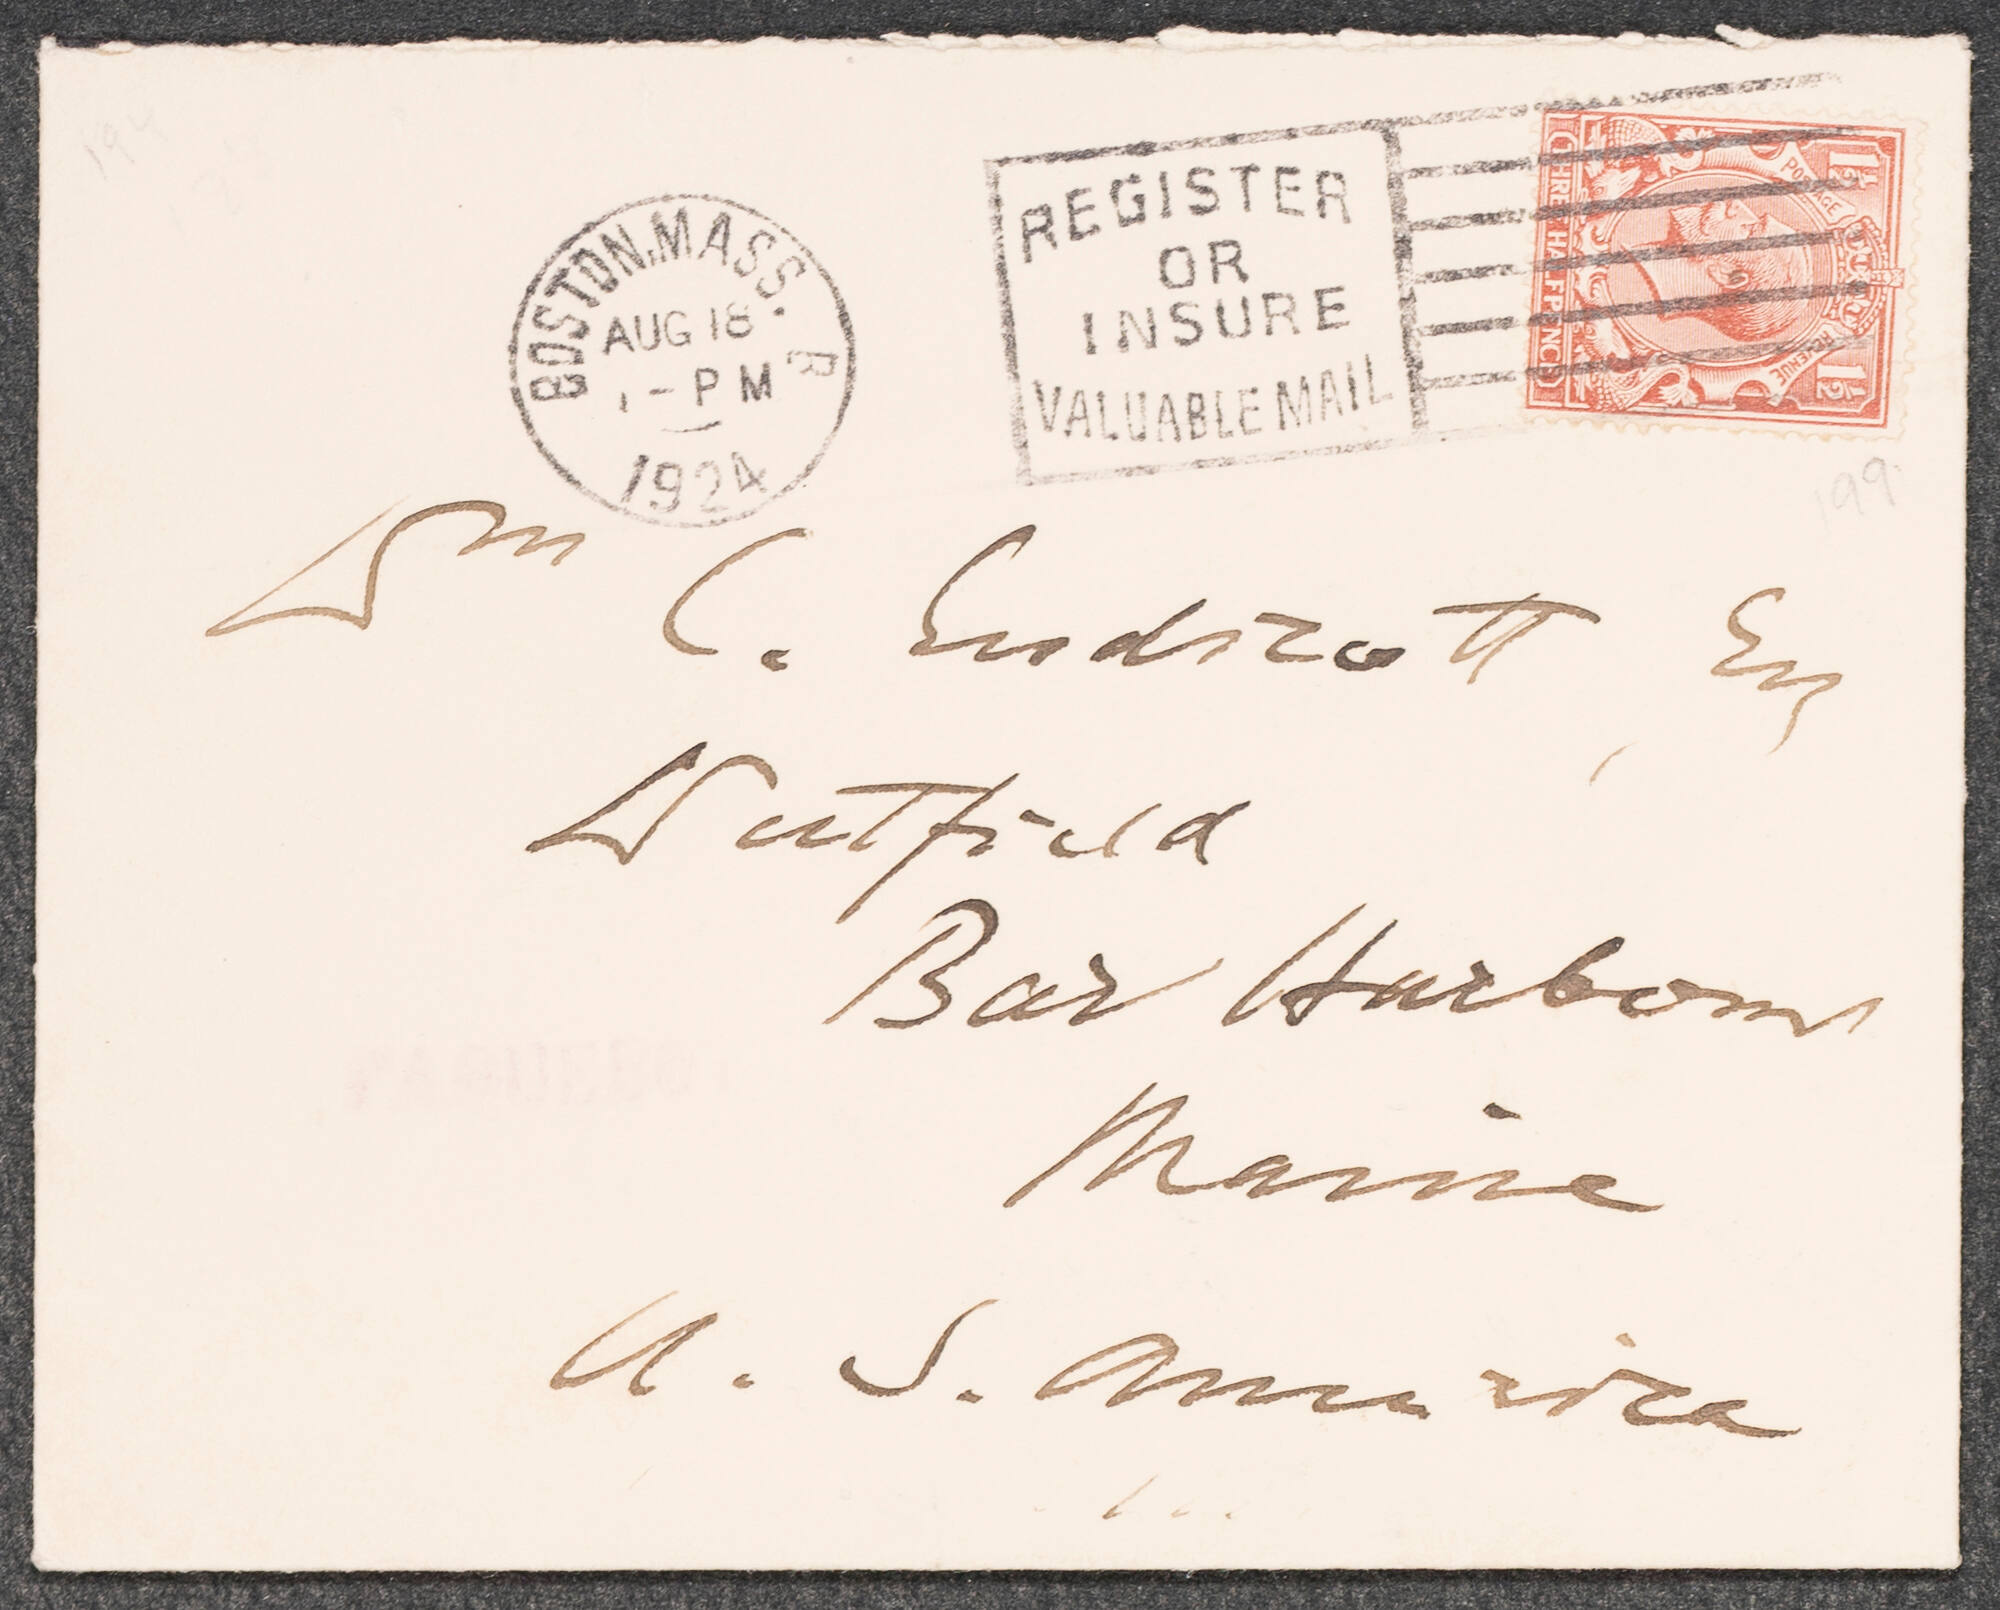 BOSTON, MASS. R
AUG 18
1 - PM
1924
REGISTER
OR
INSURE
VALUABLE MAIL
1½
POSTAGE
REVENUE
1½
THREE HALFPENCE
Wm C. Endicott Esq
Bar Harbour
Maine
U. S. America
PAQUEBOT
199
194